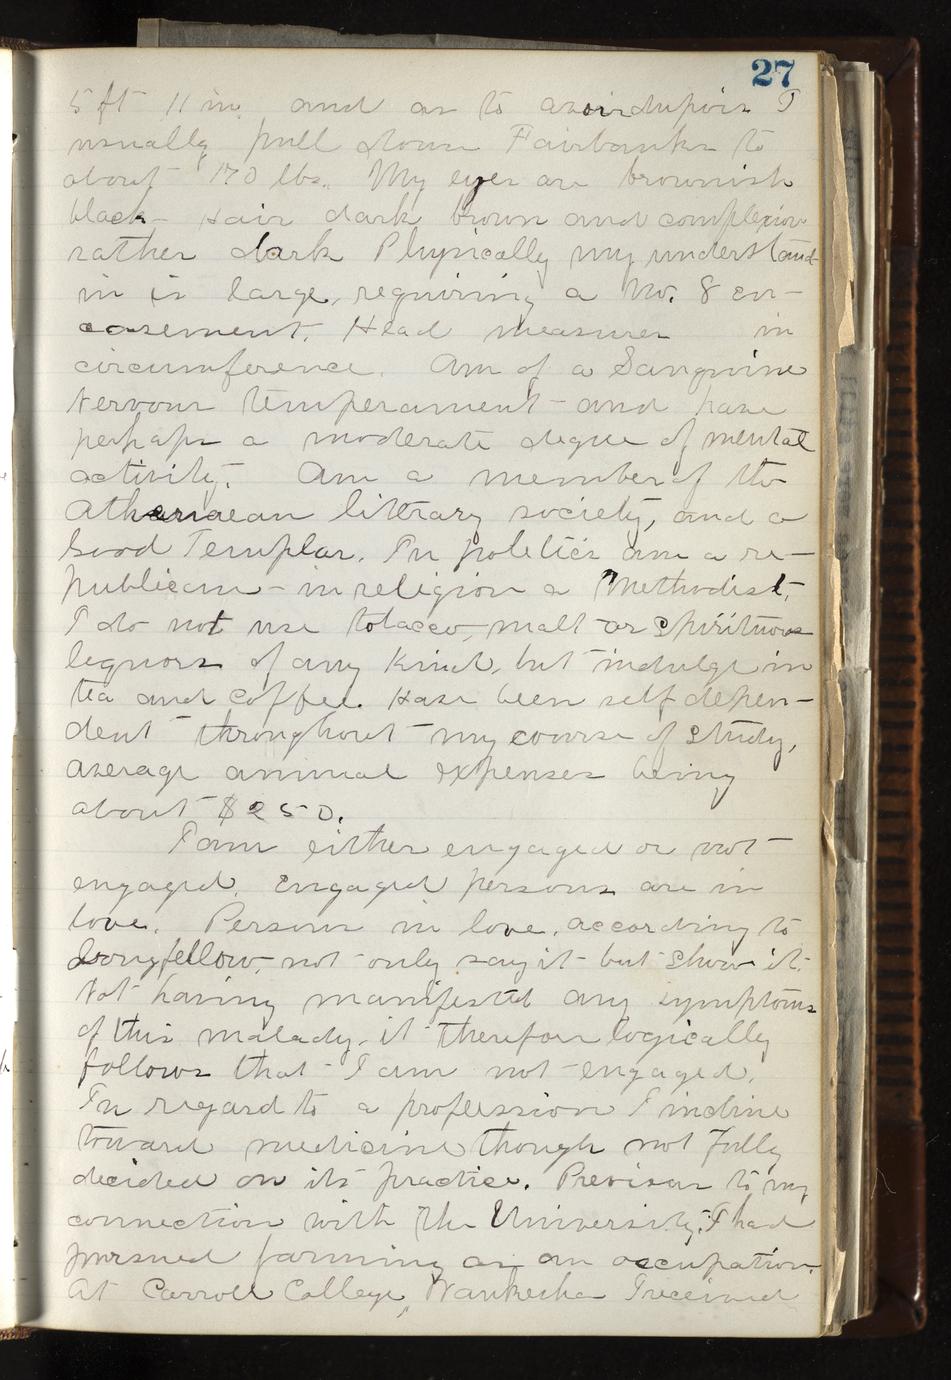 27
5 ft 11 in. and as to avoirdupois I
usually pull down Fairbanks to
about 170 lbs. My eyes are brownish
black - Hair dark brown and complexion
rather dark Physically my understand-
in is large, requiring a No. 8 en-
casement. Head measures in
circumference. Am of a Sanguine
Nervous temperament - and have
perhaps a moderate degree of mental
activity. Am a member of the
Athenaean literary society, and a
Good Templar. In politics am a re-
publican - in religion a Methodist.
I do not use tobacco, malt or Spirituous
liquors of any kind, but indulge in
tea and coffee. Have been self depen-
dent throughout my course of Study,
average annual expenses being
about $250.
I am either engaged or not
engaged. Engaged persons are in
love. Persons in love, according to
Longfellow, not only say it but Show it.
Not having manifested any symptoms
of this malady, it therefore logically
follows that I am not engaged.
In regard to a profession I incline
toward medicine though not fully
decided on its practice. Previous to my
connection with the University, I had
pursued farming as an occupation.
At Carroll College, Waukesha I received